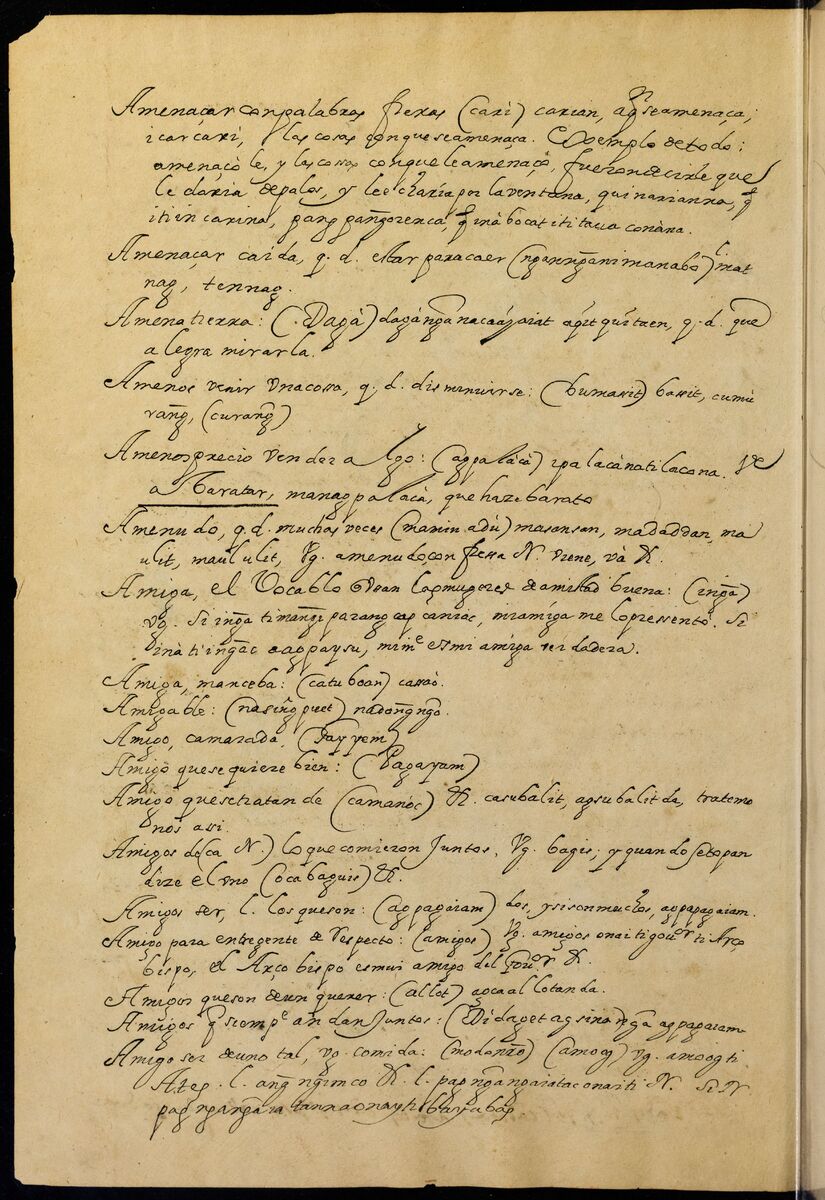 Amenaçar con palabras fieras (cari) carian, aqⁿ se amenaça;
icarcari, las cosas con que se amenaça. Exemplo de todo:
amenaçòle, y las cosas con que le amenaçò, fueron decirle que
le daria de palos, y le echaría por la ventana, quinarianna, q̃
iti in carina, pang pang̃orenca, q̃ inàbocat iti taua conàna.
Amenaçar caida, q. d. estar para caer (ngannganni manabò) l. mat
nag, tennag.
Amena tierra: (Dagà) q. d. que
alegra mirarla.
Amenos venir vna cossa, q. d. disminuirse: (bumasit) bassit, cumu
rang̃, (curang̃)
Amenos precio vender algo: (agpalàcà) ipalacànati lacona. Vᵉ
a Baratar, managpalacà, que haze barato
Amenudo, q. d. muchas veces (mamin adù) masansan, madaddan, ma
ulit, maululit, Vg. amenudo, con fressa N. viene, và &.
Amiga, el Vocablo vsan las mugeres de amistad buena: (ing̃a)
vg. Si ing̃a ti caniac, mi amíga me lo pressentò. Si
inà ti ing̃ac agpaysu, mimᵉ es mi amíga verdadera.
Amiga, manceba: (catuboan) cassào.
Amigable: (nasing̃pet) nadong̃ng̃o.
Amigo, camarada, (Gayyem)
Amigo que se quiere bien: (Pagayam)
Amigo que se tratan de (camanòc) &. casubalit, agsubalitda, tratemo
nos assi.
Amigos de (ca N.) lo que comieron Juntos, Vg. bagis; y quando se topan
dize el vno (oca baguis) &.
Amigos ser, l. los que son: (agpagaiam) dos, y si son muchos, agpapagaiam.
Amigo para entregente de respecto: (amigos) Vg. amigos onaiti gouᵒʳ ti Arço
bispo, el Arçobispo es mui amigo del Gouᵒʳ. &.
Amigos que son de un querer: (allot) agcaallotanda.
Amigos q̃ siempᵉ andan Juntos: (Didaget agsina ng̃a agpagaiam
Amigo ser de uno tal, vg. comida: (amog) vg. amogti
Ates. l. ang̃ ng̃imco &. l. papng̃ang̃aiatac onaiti N. Si N
pagng̃ang̃aiatanna onayti bayabas.